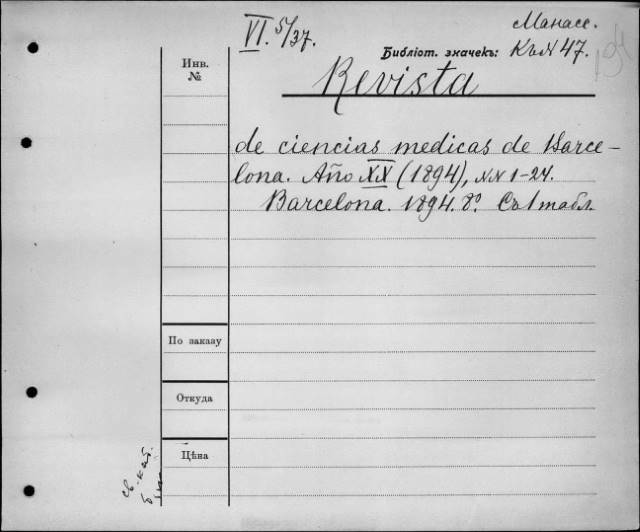 VI. 5/37.
Манассе.
Библіот. значекъ: Къ N 47.
194
Инв.
№
Revista
de ciencias medicas de Barce-
lona. Año XX (1894), NN 1-24.
Barcelona. 1894. 8º. Съ 1 табл.
По заказу
Откуда
Цѣна
св. кат.